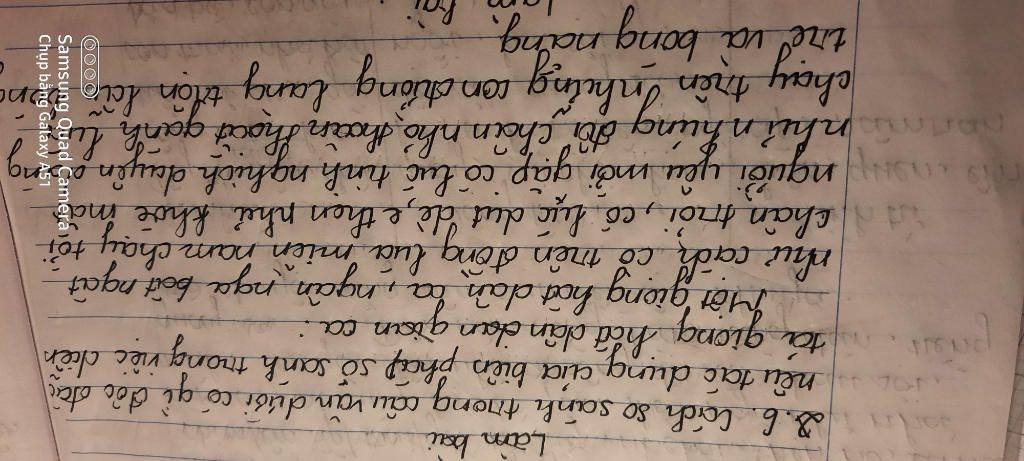 Làm bài
2. b. Cách so sánh trong câu văn dưới có gì độc đáo
nêu tác dụng của biện pháp so sánh trong việc diễn
tả giọng hát dân dan gian ca:
Một giọng hát dân ca, ngân nga bát ngát
như cánh cò trên đồng lúa miền nam chạy tới
chân trời, có lúc dụt dè, e thẹn như khóe mắt
người yêu mới gặp có lúc tinh nghịch duyên dáng
như những đôi chân nhỏ thoăn thoắt gánh lúa
chạy trên những con đường làng trộn lẫn
tre và bóng nắng
Làm bài
Samsung Quad Camera
Chụp bằng Galaxy A51